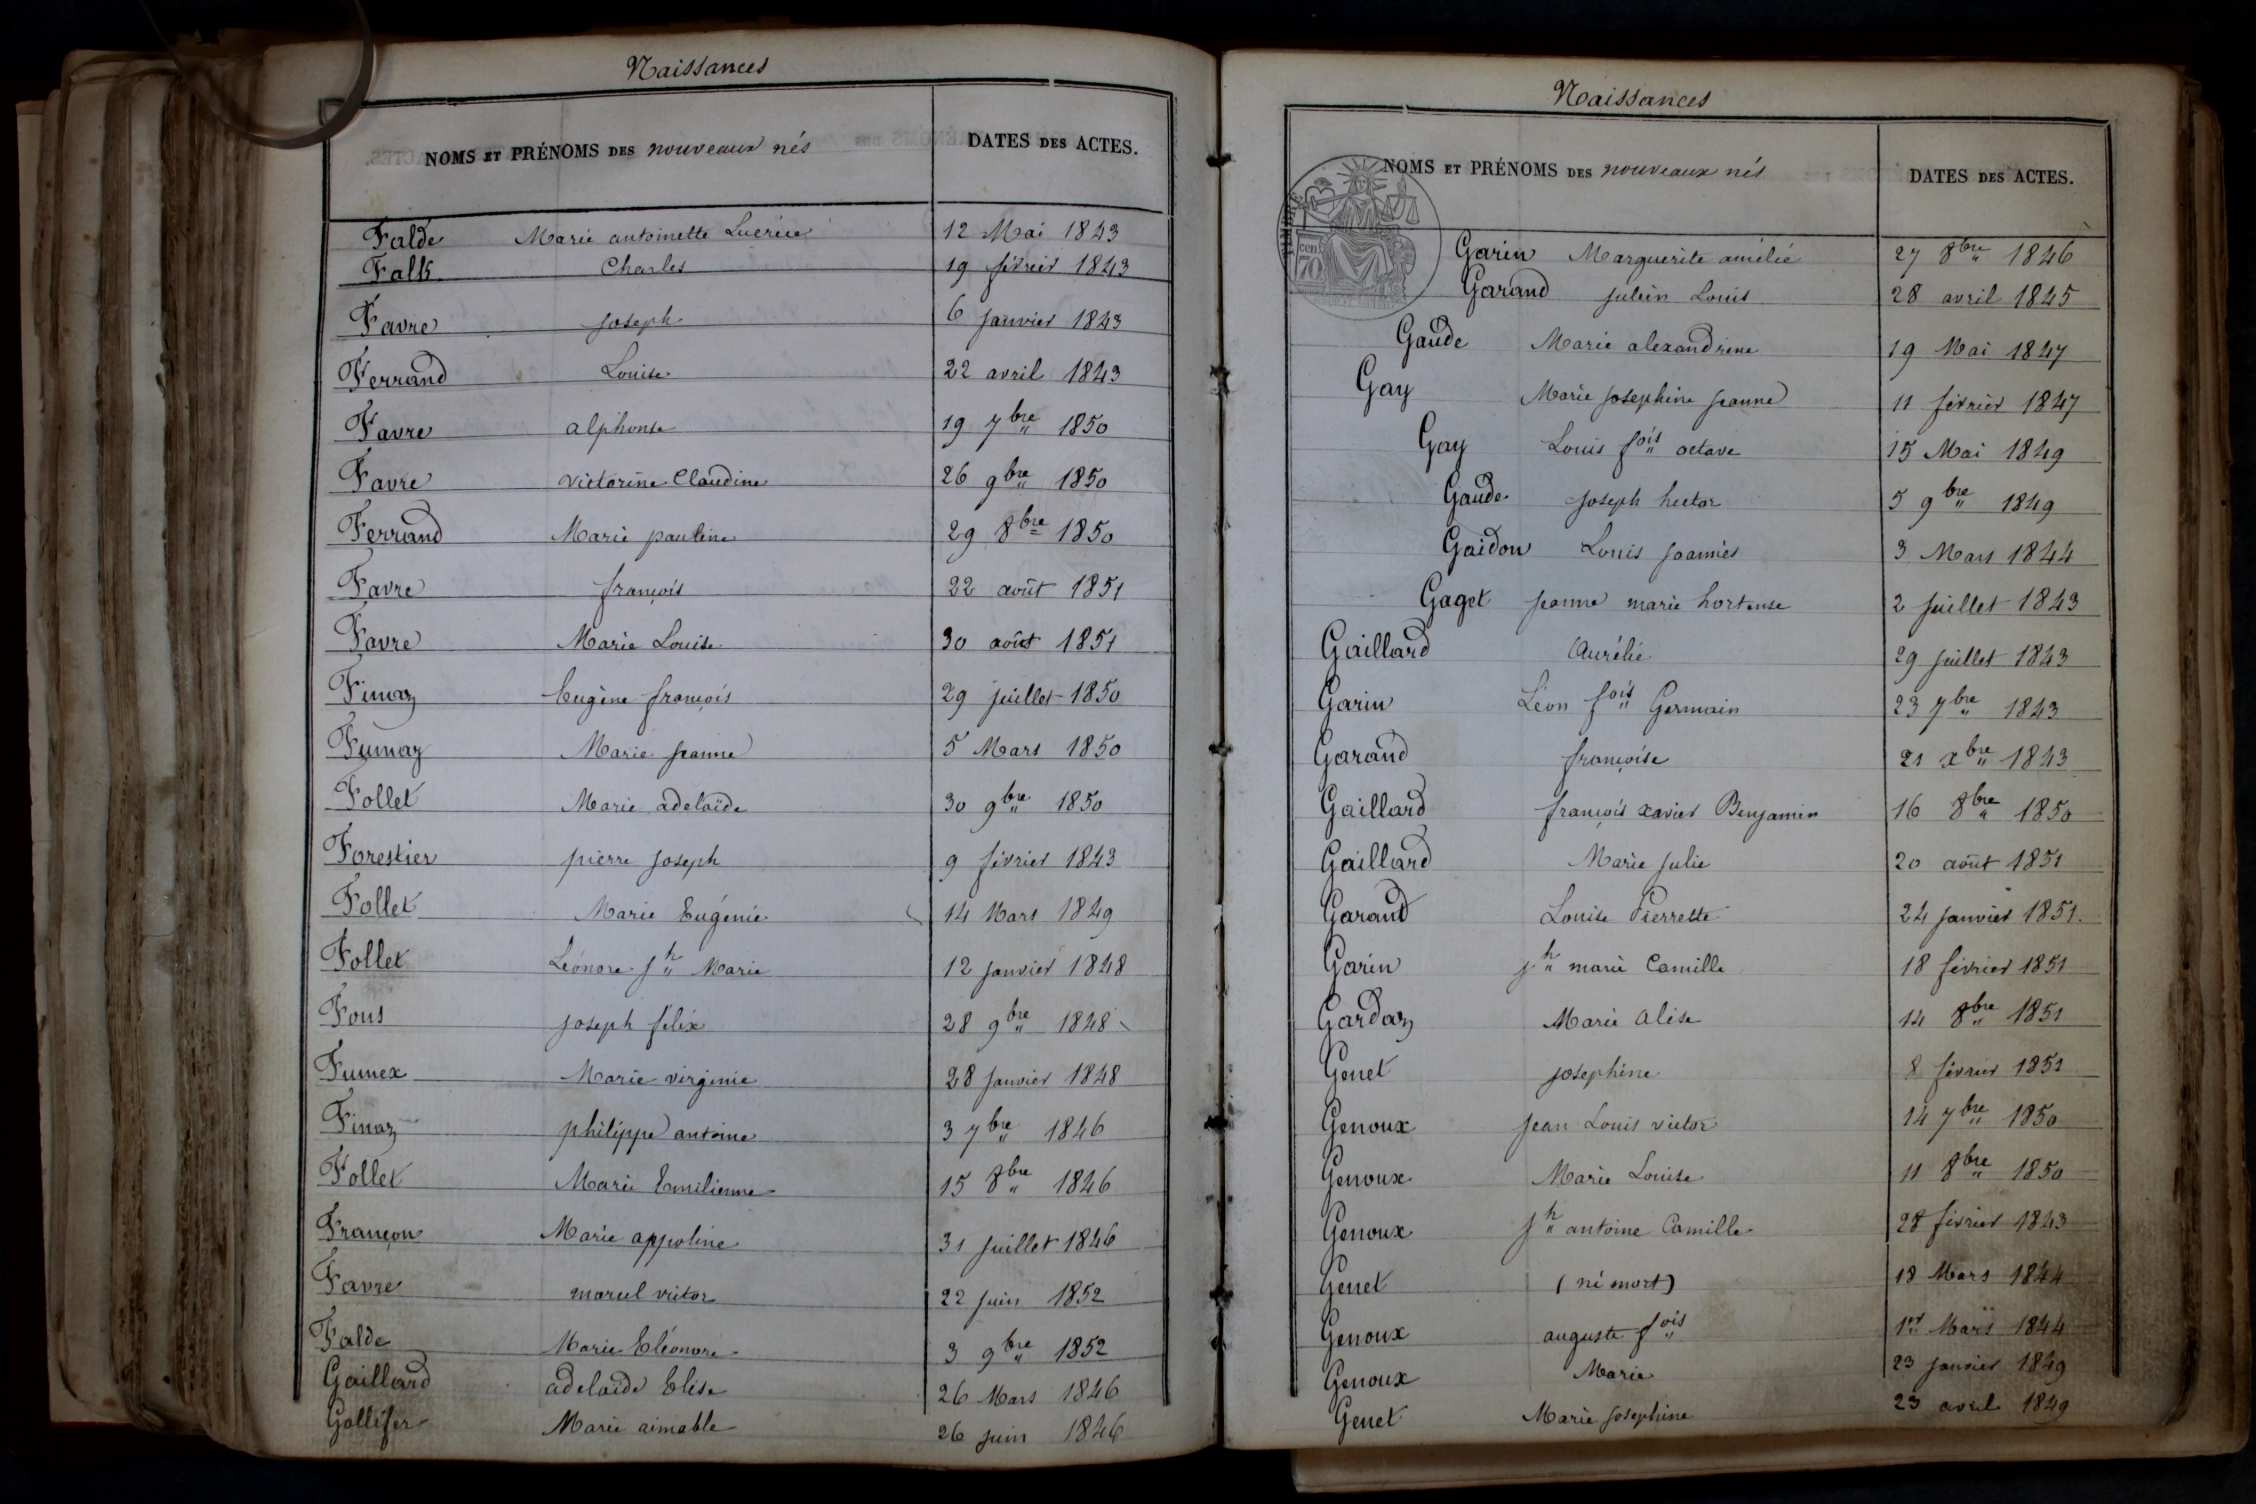 Naissances
NOMS ET PRÉNOMS DES nouveaux nés DATES DES ACTES.
Falde Marie antoinette Lucrèce 12 Mai 1843
Falk Charles 19 février 1843
Favre joseph 6 janvier 1843
Ferrand Louise 22 avril 1843
Favre alphonse 19 7bre 1850
Favre victorine Claudine 26 9bre 1850
Ferrand Marie pauline 29 8bre 1850
Favre françois 22 août 1851
Favre Marie Louise 30 août 1851
Fimaz Eugène françois 29 juillet 1850
Fumaz Marie jeanne 5 Mars 1850
Follet Marie adelaïde 30 9bre 1850
Forestier pierre joseph 9 février 1843
Follet Marie Eugénie 14 Mars 1849
Follet Léonore jh Marie 12 janvier 1848
Fous joseph félix 28 9bre 1848
Fumex Marie virginie 28 janvier 1848
Finaz philippe antoine 3 7bre 1846
Follet Marie Emilienne 15 8bre 1846
Françon Marie appoline 31 juillet 1846
Favre marcel victor 22 juin 1852
Falde Marie Eléonore 3 9bre 1852
Gaillard adelaïde Elise 26 Mars 1846
Gollifer Marie aimable 26 juin 1846
Naissances
NOMS ET PRÉNOMS DES nouveaux nés DATES DES ACTES.
TIMBRE
70 cent
Garin Marguerite amélie 27 8bre 1846
Garand julein Louis 28 avril 1845
Gaude Marie alexandrine 19 Mai 1847
Gay Marie josephine jeanne 11 février 1847
Gay Louis fois octave 15 Mai 1849
Gaude joseph hector 5 9bre 1849
Gaidon Louis joannès 3 Mars 1844
Gaget jeanne marie hortense 2 juillet 1843
Gaillard Aurélie 29 juillet 1843
Garin Léon fois Germain 23 7bre 1843
Garand françoise 21 xbre 1843
Gaillard françois xavier Benjamin 16 8bre 1850
Gaillard Marie julie 20 août 1851
Garand Louise Pierrette 24 janvier 1851.
Garin jh marie Camille 18 février 1851
Gardaz Marie Alise 14 8bre 1851
Genet josephine 8 février 1851
Genoux jean Louis victor 14 7bre 1850
Genoux Marie Louise 11 8bre 1850
Genoux jh antoine Camille 28 février 1843
Genet (né mort) 18 Mars 1844
Genoux auguste fois 1er Mars 1844
Genoux Marie 23 janvier 1849
Genet Marie josephine 23 avril 1849